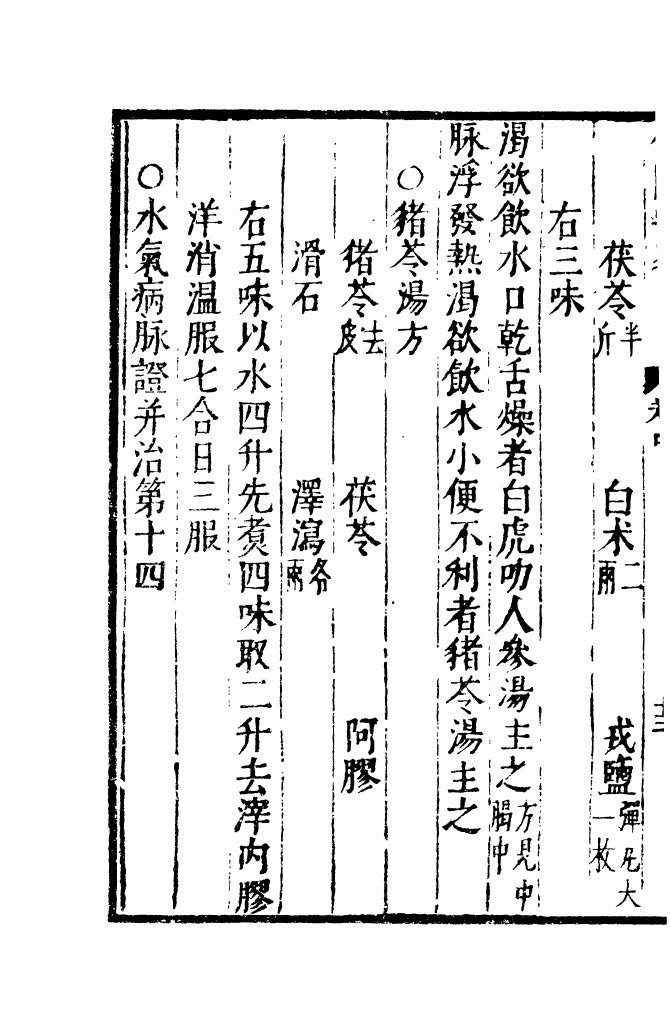 茯苓半斤　白朮二兩　戎鹽彈丸大一枚
右三味
渴欲飲水口乾舌燥者白虎加人參湯主之方見中暍中
脉浮發熱渴欲飲水小便不利者豬苓湯主之
○豬苓湯方
豬苓去皮　茯苓　阿膠
滑石　澤瀉各兩
右五味以水四升先煑四味取二升去滓內膠
洋消温服七合日三服
○水氣病脉證并治第十四